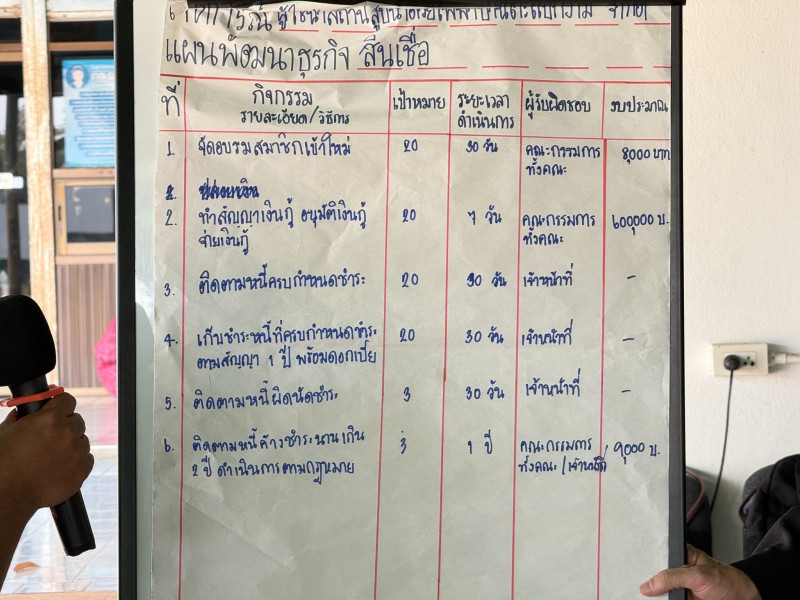 แผนพัฒนาธุรกิจ สินเชื่อ
ที่ กิจกรรม รายละเอียด/วิธีการ เป้าหมาย ระยะเวลา ดำเนินการ ผู้รับผิดชอบ งบประมาณ
1. จัดอบรมสมาชิกเข้าใหม่ 20 30 วัน คณะกรรมการ ทั้งคณะ 8,000 บาท
2. ทำสัญญาเงินกู้ อนุมัติเงินกู้ 20 7 วัน คณะกรรมการ 600,000 บ.
จ่ายเงินกู้ ทั้งคณะ
3. ติดตามหนี้ครบกำหนดชำระ 20 30 วัน เจ้าหน้าที่ -
4. เก็บชำระหนี้ที่ครบกำหนดชำระ 20 30 วัน เจ้าหน้าที่ -
ตามสัญญา 1 ปี พร้อมดอกเบี้ย
5. ติดตามหนี้ผิดนัดชำระ 3 30 วัน เจ้าหน้าที่ -
6. ติดตามหนี้ค้างชำระนานเกิน 3 1 ปี คณะกรรมการ 9,000 บ.
2 ปี ดำเนินการตามกฎหมาย ทั้งคณะ / เจ้าหน้าที่